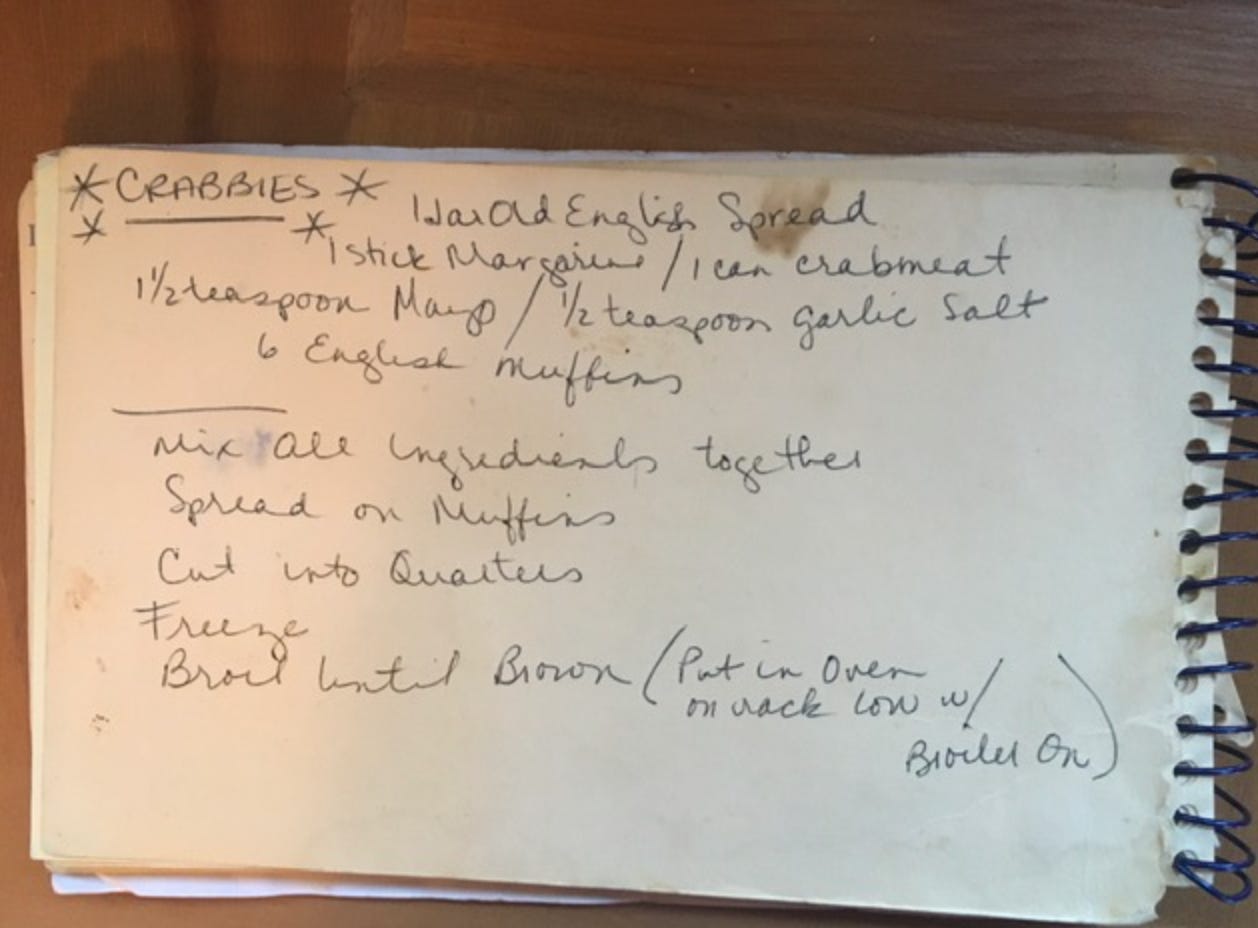 * CRABBIES *
* *
1 Jar Old English Spread
1 stick Margarine / 1 can crabmeat
1 1/2 teaspoon Mayo / 1/2 teaspoon garlic Salt
6 English Muffins
Mix All Ingredients together
Spread on Muffins
Cut into Quarters
Freeze
Broil Until Brown (Put in Oven
on rack low w/
Broiler On)